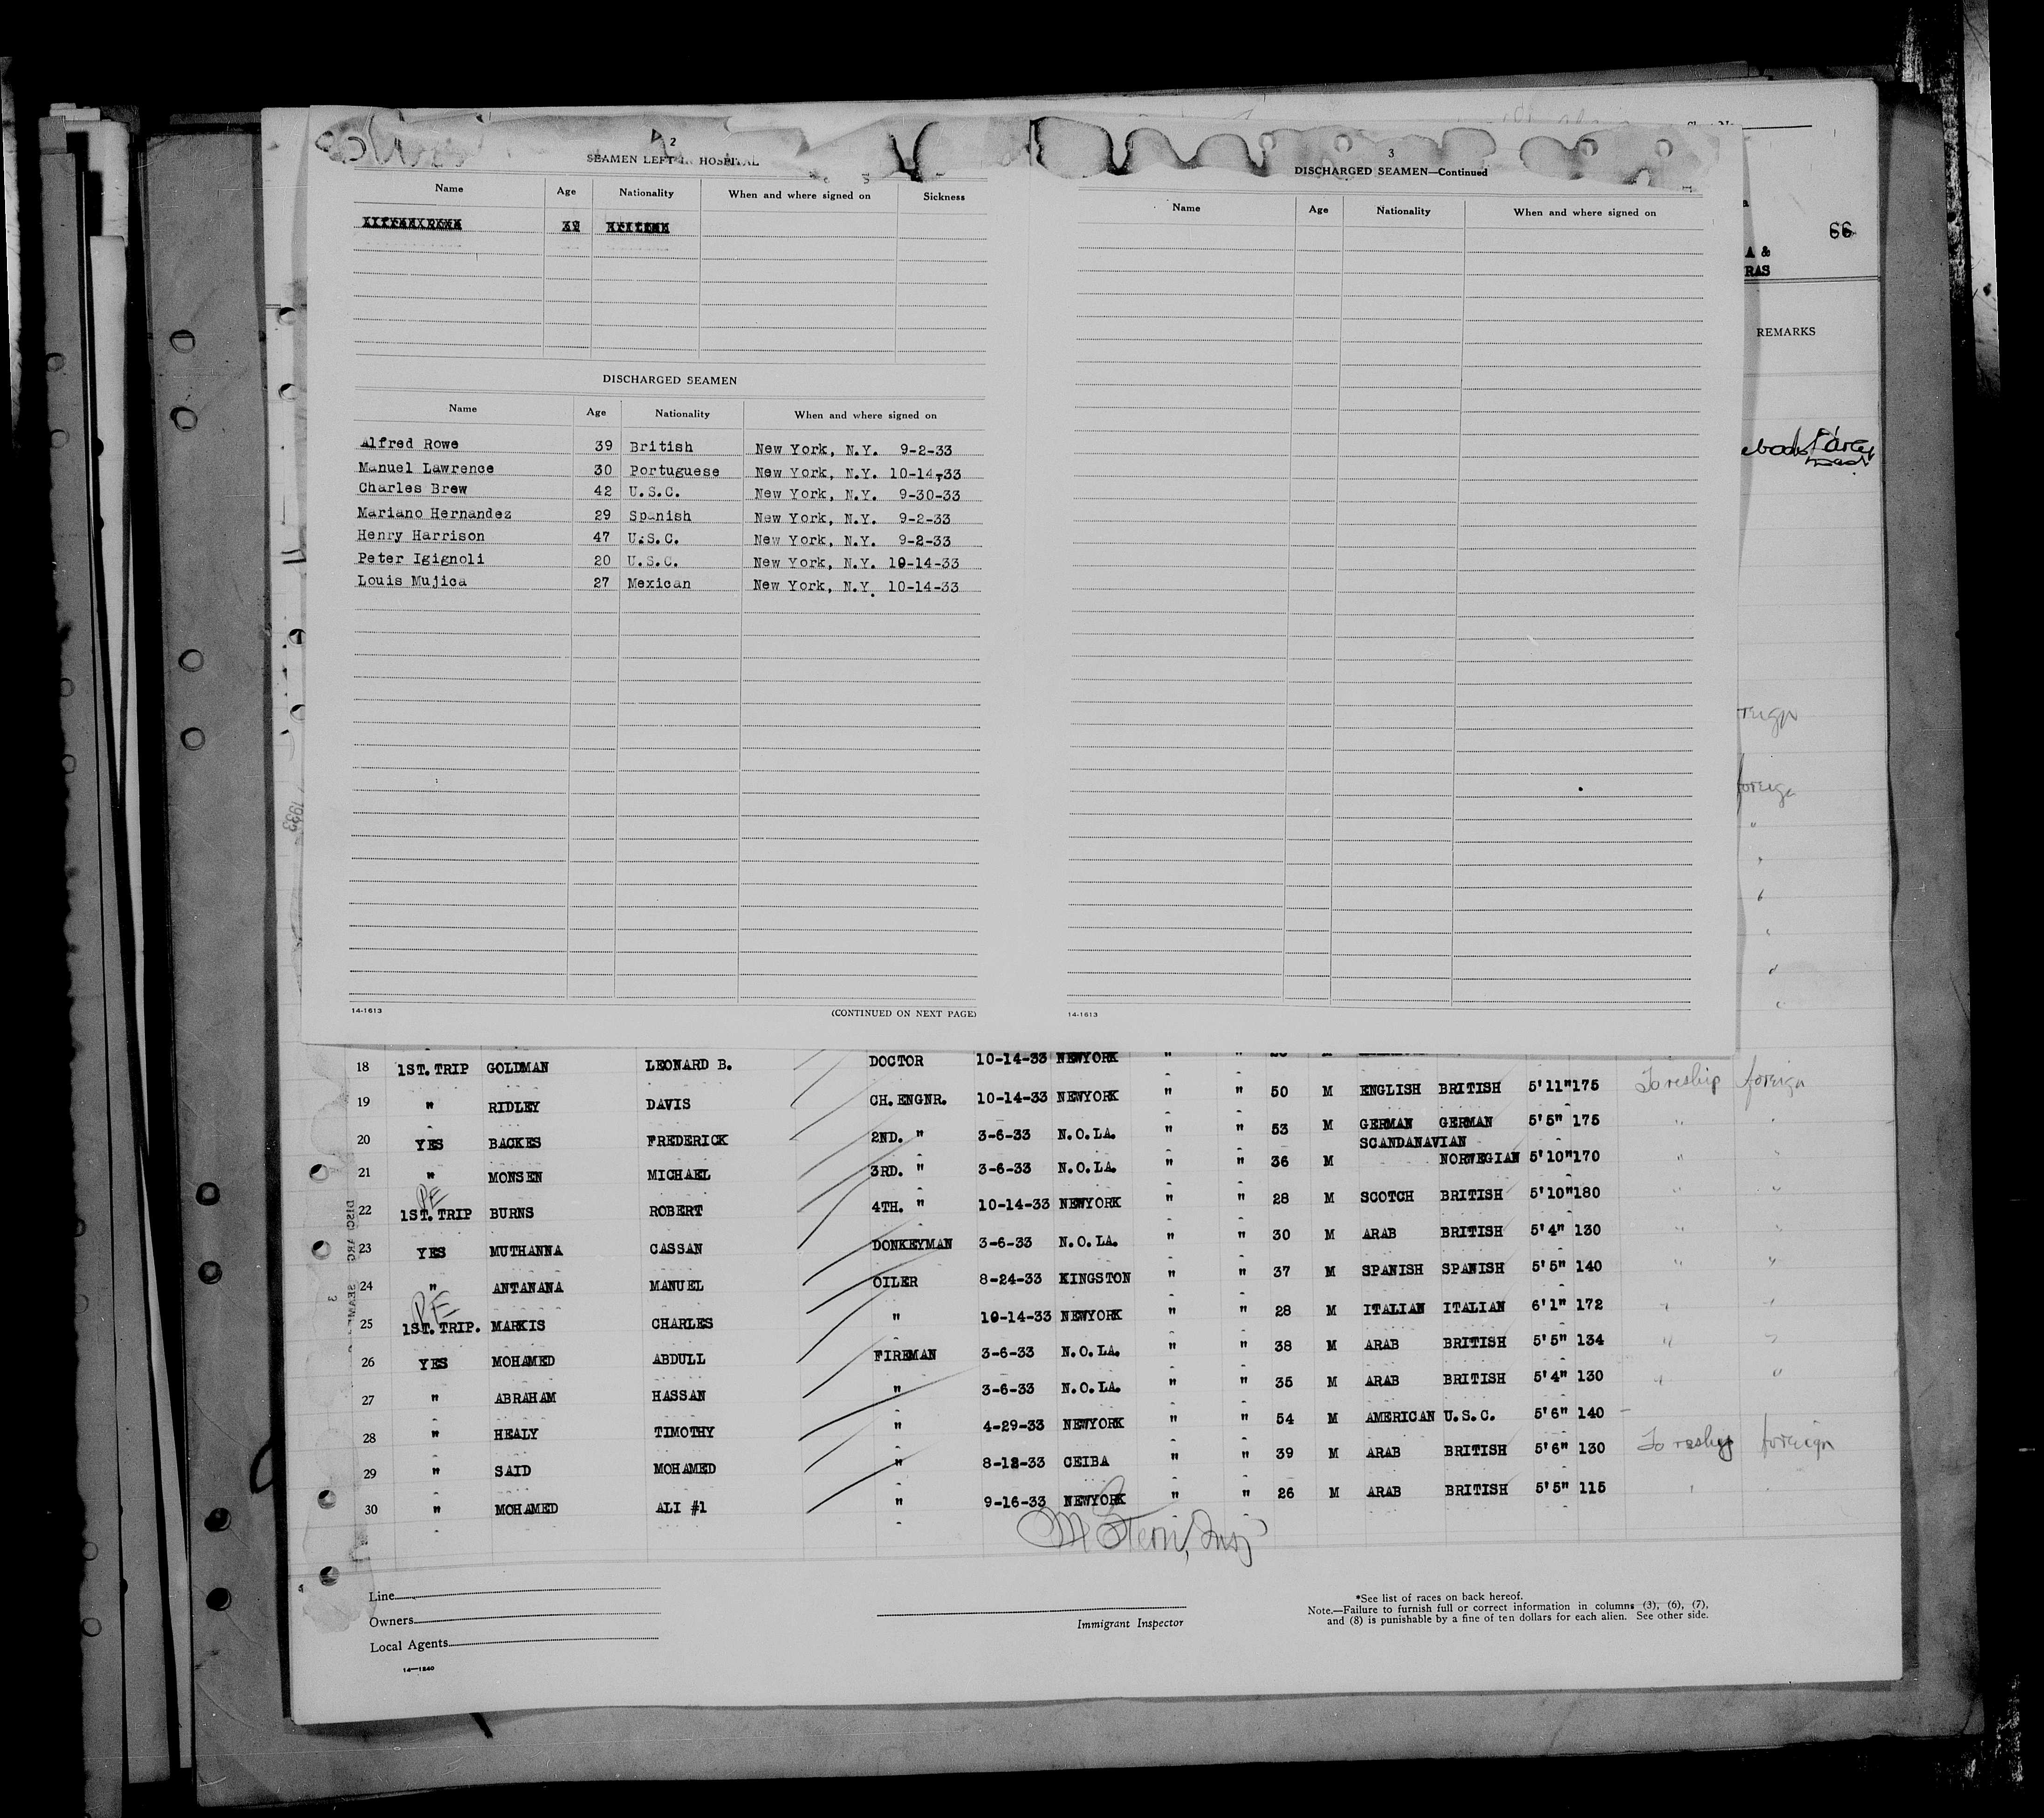 2
SEAMEN LEFT IN HOSPITAL
Name Age Nationality When and where signed on Sickness
DISCHARGED SEAMEN
Name Age Nationality When and where signed on
Alfred Rowe 39 British New York, N.Y. 9-2-33
Manuel Lawrence 30 Portuguese New York, N.Y. 10-14-33
Charles Brew 42 U.S.C. New York, N.Y. 9-30-33
Mariano Hernandez 29 Spanish New York, N.Y. 9-2-33
Henry Harrison 47 U.S.C. New York, N.Y. 9-2-33
Peter Igignoli 20 U.S.C. New York, N.Y. 10-14-33
Louis Mujica 27 Mexican New York, N.Y. 10-14-33
14-1613 (CONTINUED ON NEXT PAGE)
3
DISCHARGED SEAMEN—Continued
Name Age Nationality When and where signed on
14-1613
66
A &
RAS
REMARKS
foreign
18 1ST. TRIP GOLDMAN LEONARD B. DOCTOR 10-14-33 NEWYORK " "
19 " RIDLEY DAVIS CH. ENGNR. 10-14-33 NEWYORK " " 50 M ENGLISH BRITISH 5'11" 175 To reship foreign
20 YES BACKES FREDERICK 2ND. " 3-6-33 N.O.LA. " " 53 M GERMAN GERMAN 5'5" 175 " "
21 " MONSEN MICHAEL 3RD. " 3-6-33 N.O.LA. " " 36 M SCANDANAVIAN NORWEGIAN 5'10" 170 " "
PE
22 1ST. TRIP BURNS ROBERT 4TH. " 10-14-33 NEWYORK " " 28 M SCOTCH BRITISH 5'10" 180 " "
23 YES MUTHANNA CASSAN DONKEYMAN 3-6-33 N.O.LA. " " 30 M ARAB BRITISH 5'4" 130 " "
24 " ANTANANA MANUEL OILER 8-24-33 KINGSTON " " 37 M SPANISH SPANISH 5'5" 140 " "
PE
25 1ST. TRIP. MARKIS CHARLES " 10-14-33 NEWYORK " " 28 M ITALIAN ITALIAN 6'1" 172 " "
26 YES MOHAMED ABDULL FIREMAN 3-6-33 N.O.LA. " " 38 M ARAB BRITISH 5'5" 134 " "
27 " ABRAHAM HASSAN " 3-6-33 N.O.LA. " " 35 M ARAB BRITISH 5'4" 130 " "
28 " HEALY TIMOTHY " 4-29-33 NEWYORK " " 54 M AMERICAN U.S.C. 5'6" 140 -
29 " SAID MOHAMED " 8-12-33 CEIBA " " 39 M ARAB BRITISH 5'6" 130 To reship foreign
30 " MOHAMED ALI #1 " 9-16-33 NEWYORK " " 26 M ARAB BRITISH 5'5" 115 " "
M Stern, Insp
Line
Owners
Local Agents
14—1240
Immigrant Inspector
*See list of races on back hereof.
Note.—Failure to furnish full or correct information in columns (3), (6), (7),
and (8) is punishable by a fine of ten dollars for each alien. See other side.